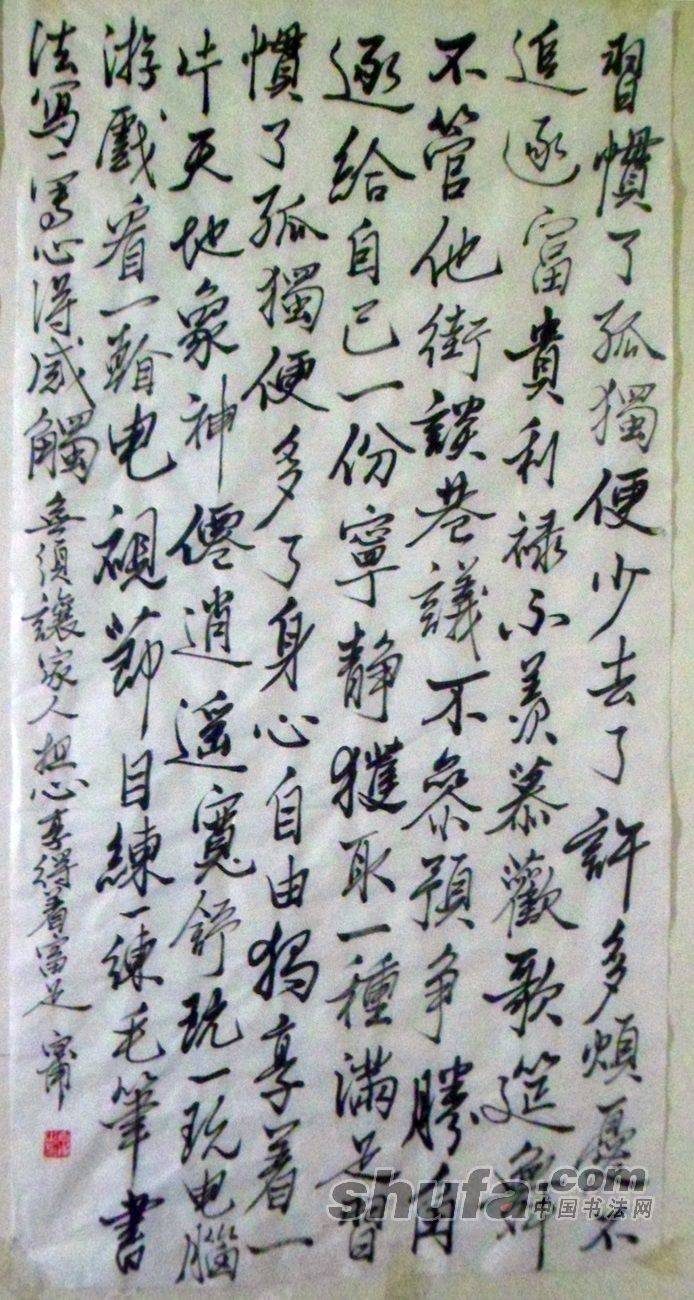 習慣了孤獨便少去了許多煩憂不
追逐富貴利禄不羡慕歡歌筵舞
不管他街談巷議不參預争勝角
逐給自己一份寧静獲取一種滿足習
慣了孤獨便多了身心自由獨享着一
片天地象神僊逍遥寬舒玩一玩电腦
游戲看一輪电視節目練一練毛筆書
法寫一寫心得感觸無須讓家人担心享得着富足
shufa.com
中国书法网